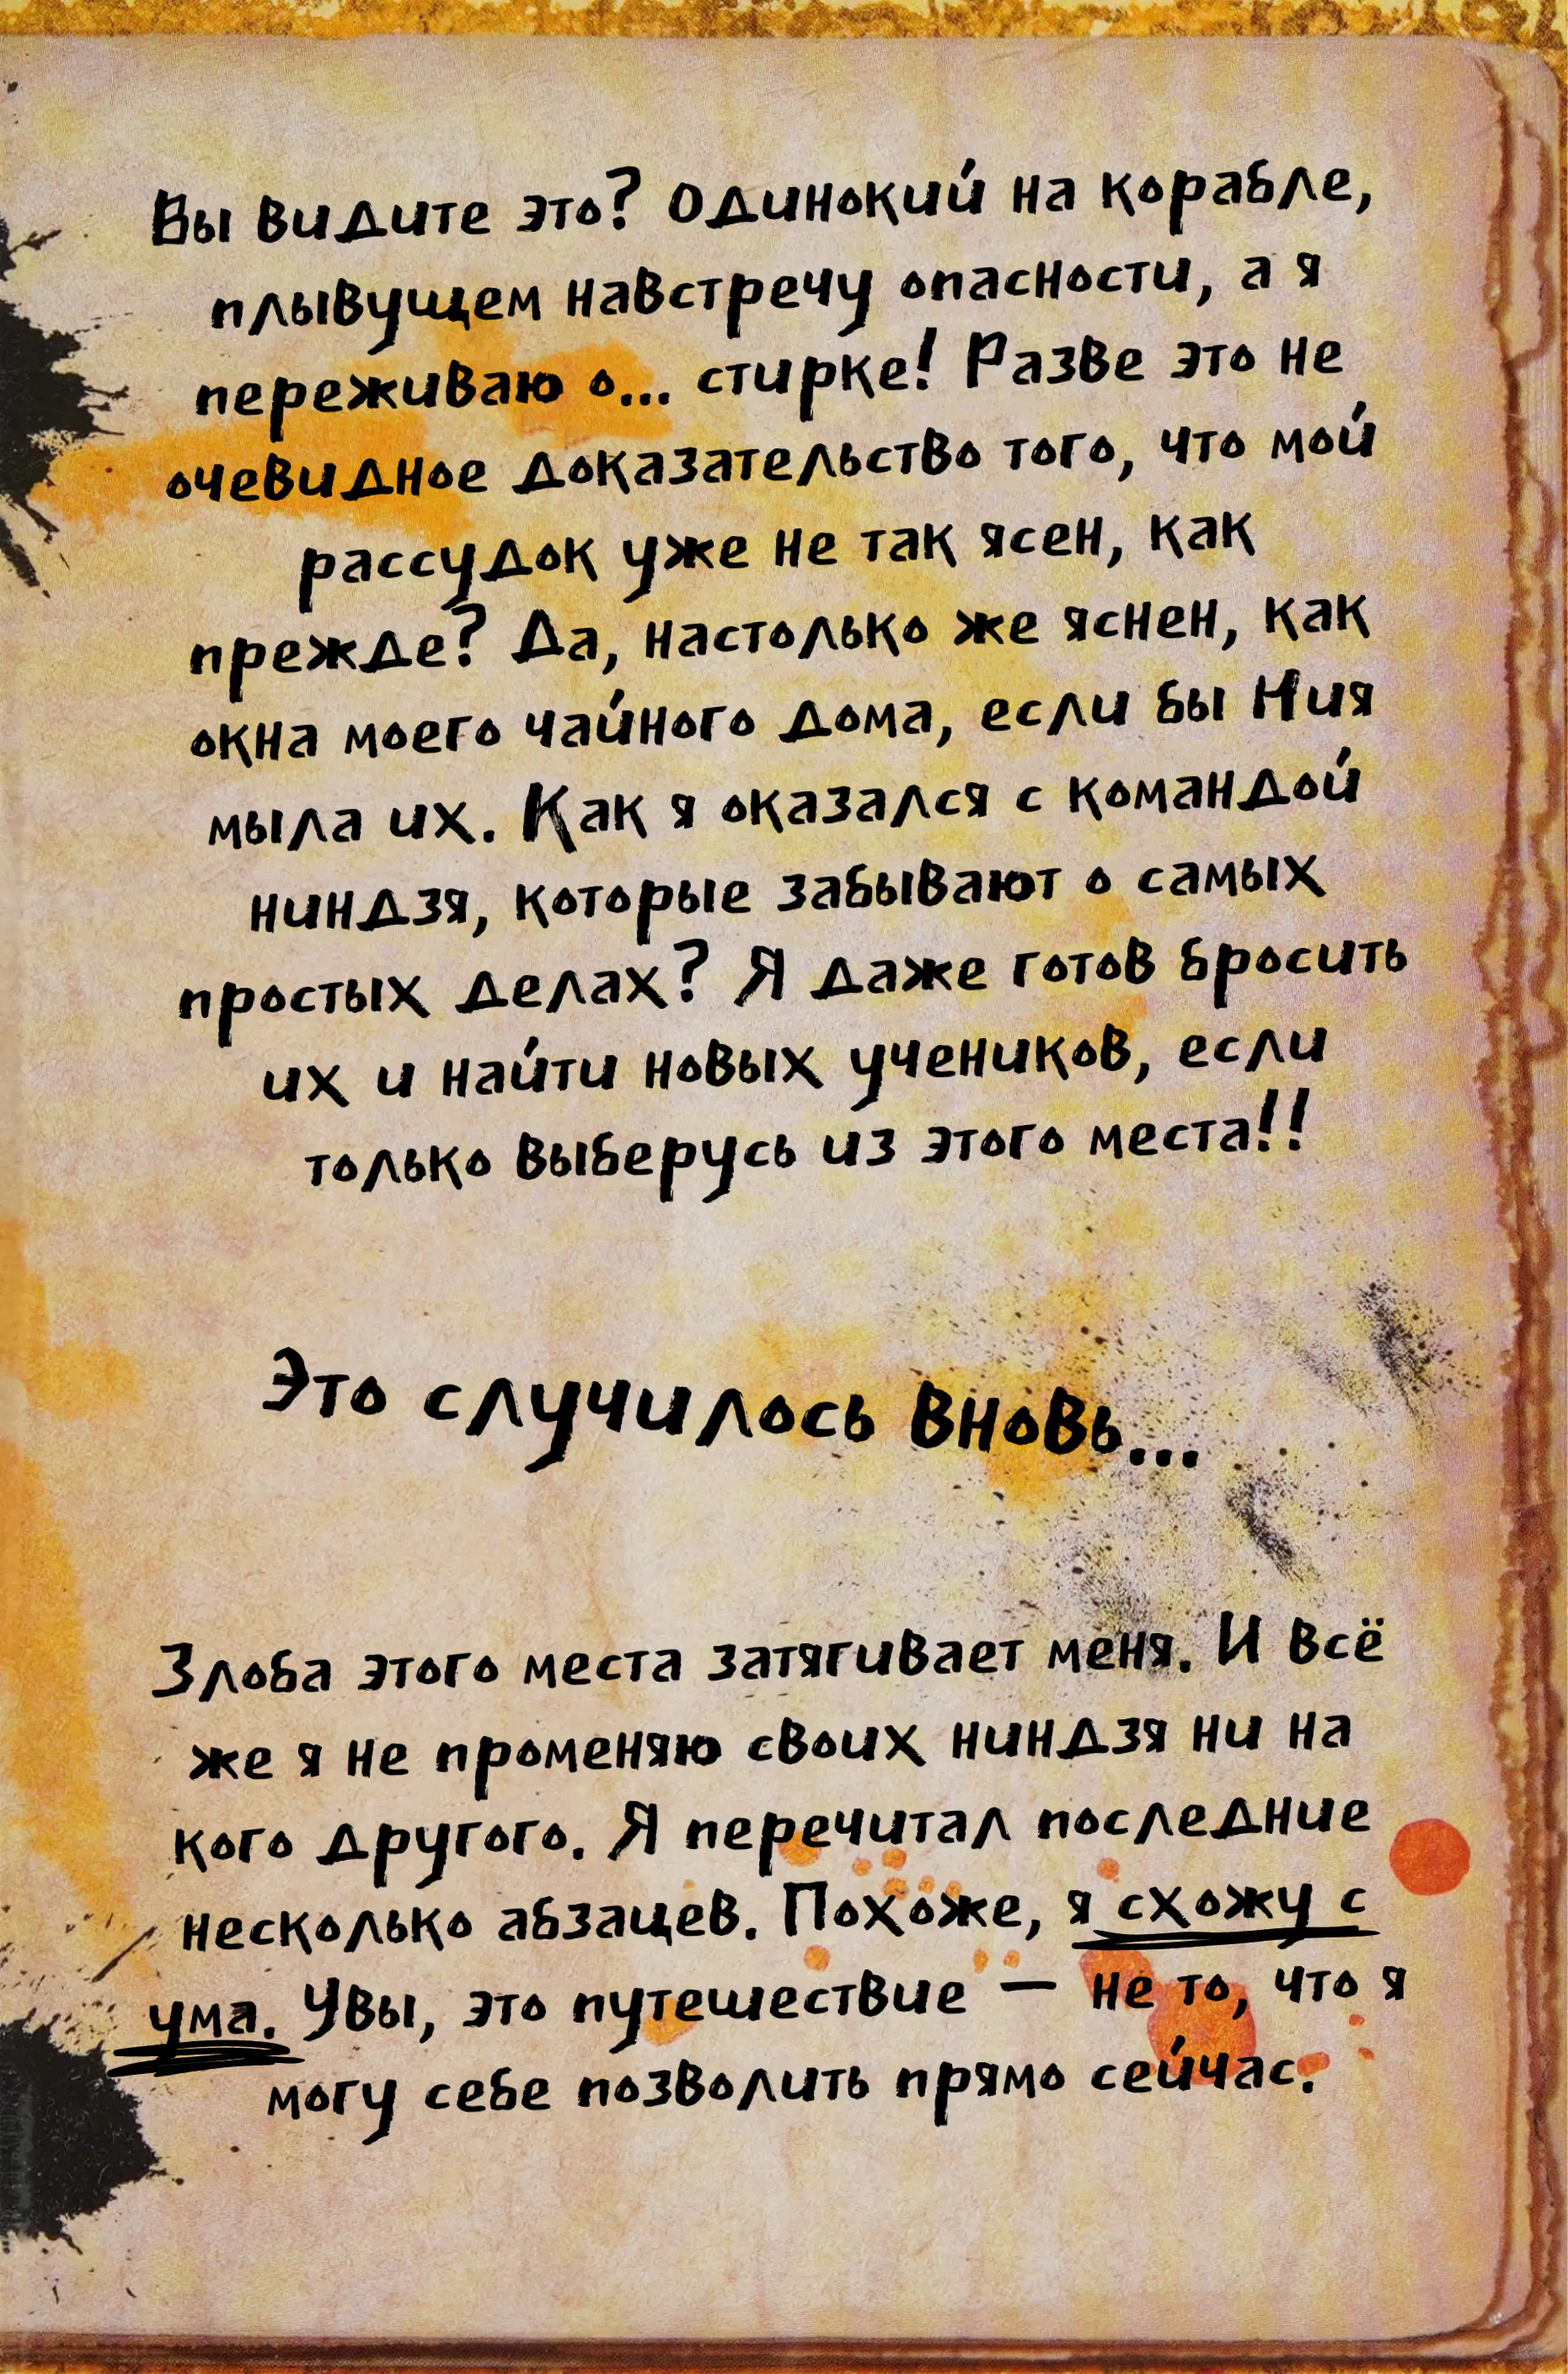 Вы видите это? Одинокий на корабле,
плывущем навстречу опасности, а я
переживаю о... стирке! Разве это не
очевидное доказательство того, что мой
рассудок уже не так ясен, как
прежде? Да, настолько же яснен, как
окна моего чайного дома, если бы Ния
мыла их. Как я оказался с командой
ниндзя, которые забывают о самых
простых делах? Я даже готов бросить
их и найти новых учеников, если
только выберусь из этого места!!
Это случилось вновь...
Злоба этого места затягивает меня. И всё
же я не променяю своих ниндзя ни на
кого другого. Я перечитал последние
несколько абзацев. Похоже, я схожу с
ума. Увы, это путешествие — не то, что я
могу себе позволить прямо сейчас.